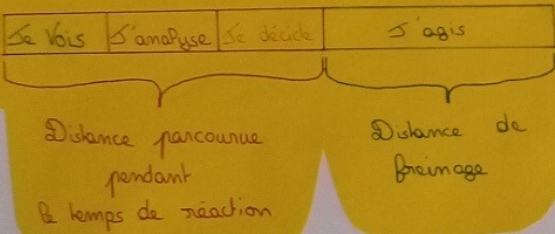 Je Vois J'analyse Je décide J'agis
Distance parcourue
pendant
le temps de réaction
Distance de
freinage